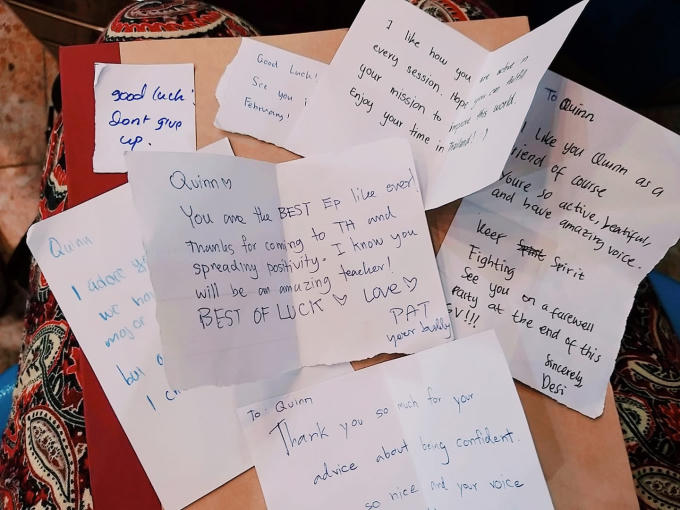 good luck!
dont give
up.
Good Luck!
See you i
February!
I like how you are active in
every session. Hope you can fulfill
your mission to improve this world.
Enjoy your time in Thailand! :)
To Quinn
I Like you Quinn as a
friend of course
Youre so active, beatiful,
and have amazing voice.
Keep Spirit
Fighting
See you on a farewell
party at the end of this
GV!!!
Sincerely
Desi
Quinn♡
You are the BEST EP like ever!
Thanks for coming to TH and
spreading positivity. I know you
will be an amazing teacher!
BEST OF LUCK ♡ Love♡
PAT
your buddy
Quinn
I adore
we
major
but
I
To: Quinn
Thank you so much for your
advice about being confident.
so nice and your voice